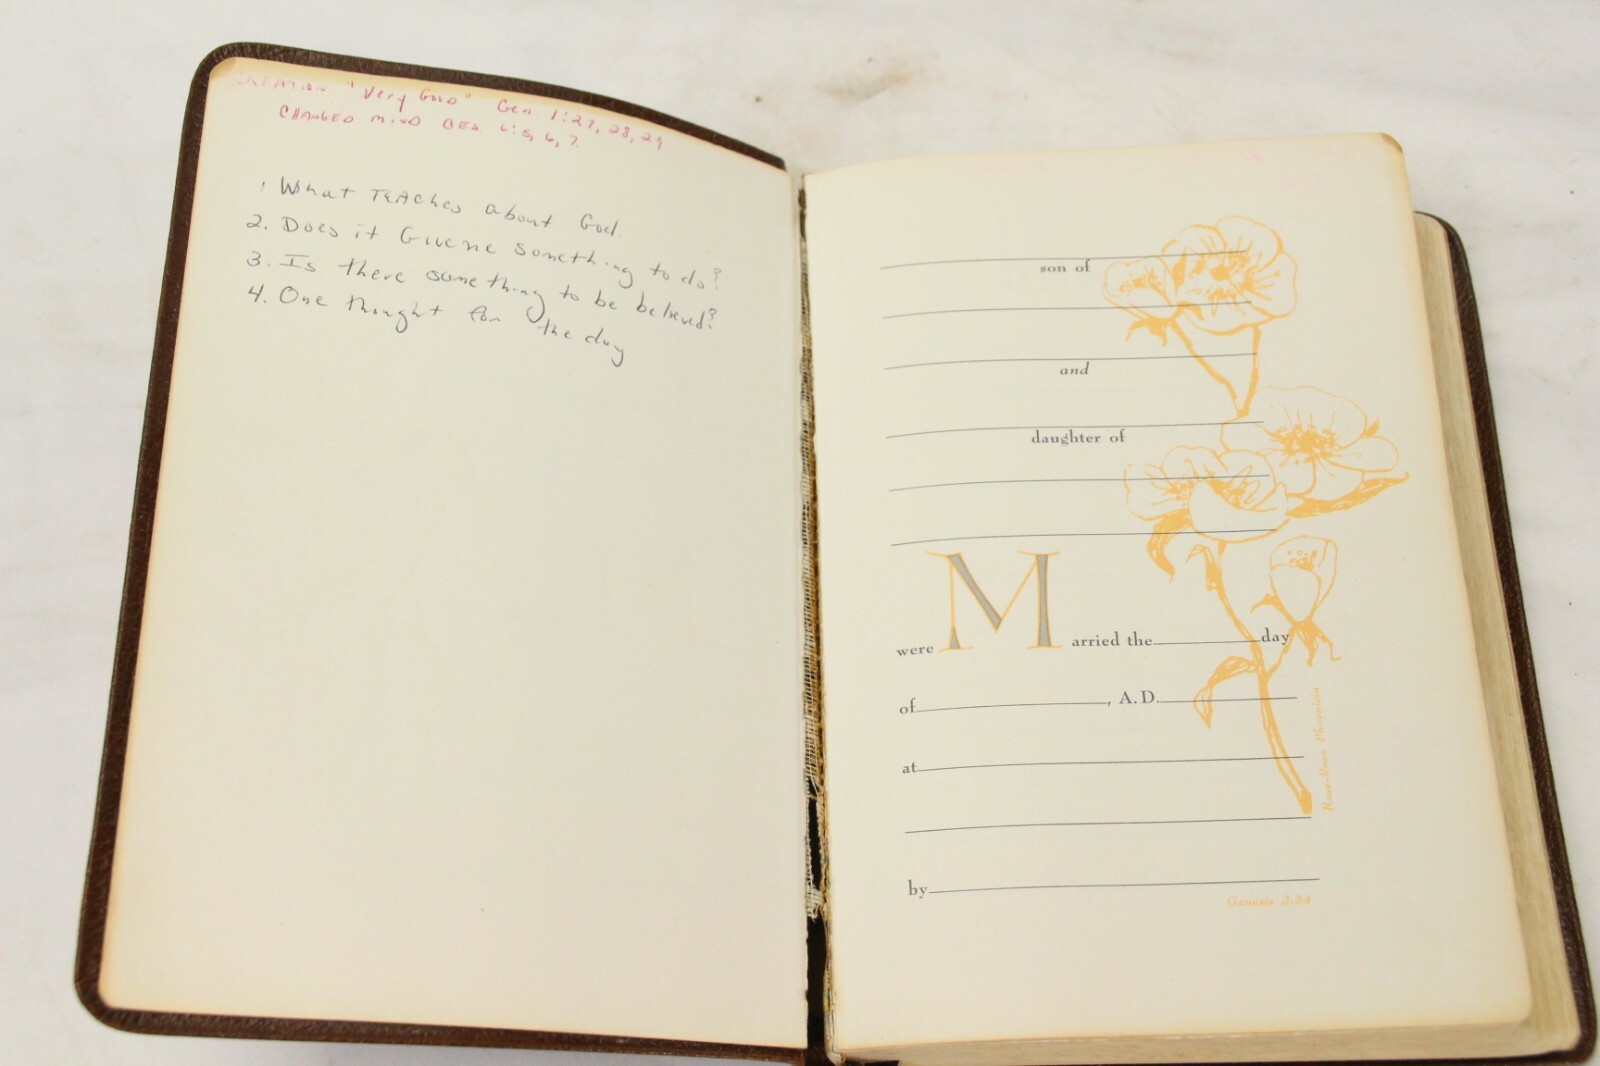 CREATION "Very GooD" Gen 1:27, 28, 29
CHANGED MIND GEN 6:5, 6, 7.
1 What TEAches about God.
2. Does it Give me something to do?
3. Is there something to be believed?
4. One thought for the day
son of
and
daughter of
were Married the day
of , A.D.
at
by
Genesis 2:24
Rose-Rosa Phoenicia